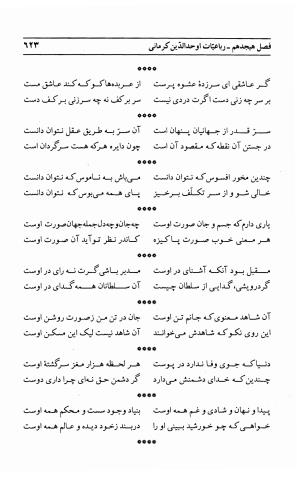 فصل هیجدهم ـ رباعیّات اوحدالدّین کرمانی ۶۲۳
****
گر عاشقی ای سرزدهٔ عشوه پرست از عربده‌ها کو که کند عاشق مست
بر سر چه زنی دست اگرت دردی نیست سر بر کف نه چه سرزنی بر کف دست
****
سرّ قدر از جهانیان پنهان است آن سرّ به طریق عقل نتوان دانست
در جستن آن نقطه که مقصود آن است چون دایره هرکه هست سرگردان است
****
چندین مخور افسوس که نتوان دانست می‌باش به ناموس که نتوان دانست
خالی شو و از سر تکلّف برخیز پای همه می‌بوس که نتوان دانست
****
یاری دارم که جسم و جان صورت اوست چه‌جان و چه‌دل‌جمله‌جهان‌صورت اوست
هر معنی خوب صورت پاکیزه کاندر نظر تو آید آن صورت اوست
****
مقبل بود آنکه آشنای در اوست مدبر باشی گرت نه رای در اوست
گر درویشی، گدایی از سلطان چیست آن سلطانان همه گدای در اوست
****
آن شاهد معنوی که جانم تن اوست جان در تن من زصورت روشن اوست
این روی نکو که شاهدش می‌خوانند آن شاهد نیست لیک این مسکن اوست
****
دنیا که جوی وفا ندارد در پوست هر لحظه هزار مغز سرگشتهٔ اوست
چندین که خدای دشمنش می‌دارد گر دشمن حق نه‌ای چرا داری دوست
****
پیدا و نهان و شادی و غم همه اوست بنیاد وجود سست و محکم همه اوست
خواهی که چو خورشید ببینی او را دربند زخود دیده و عالم همه اوست
****